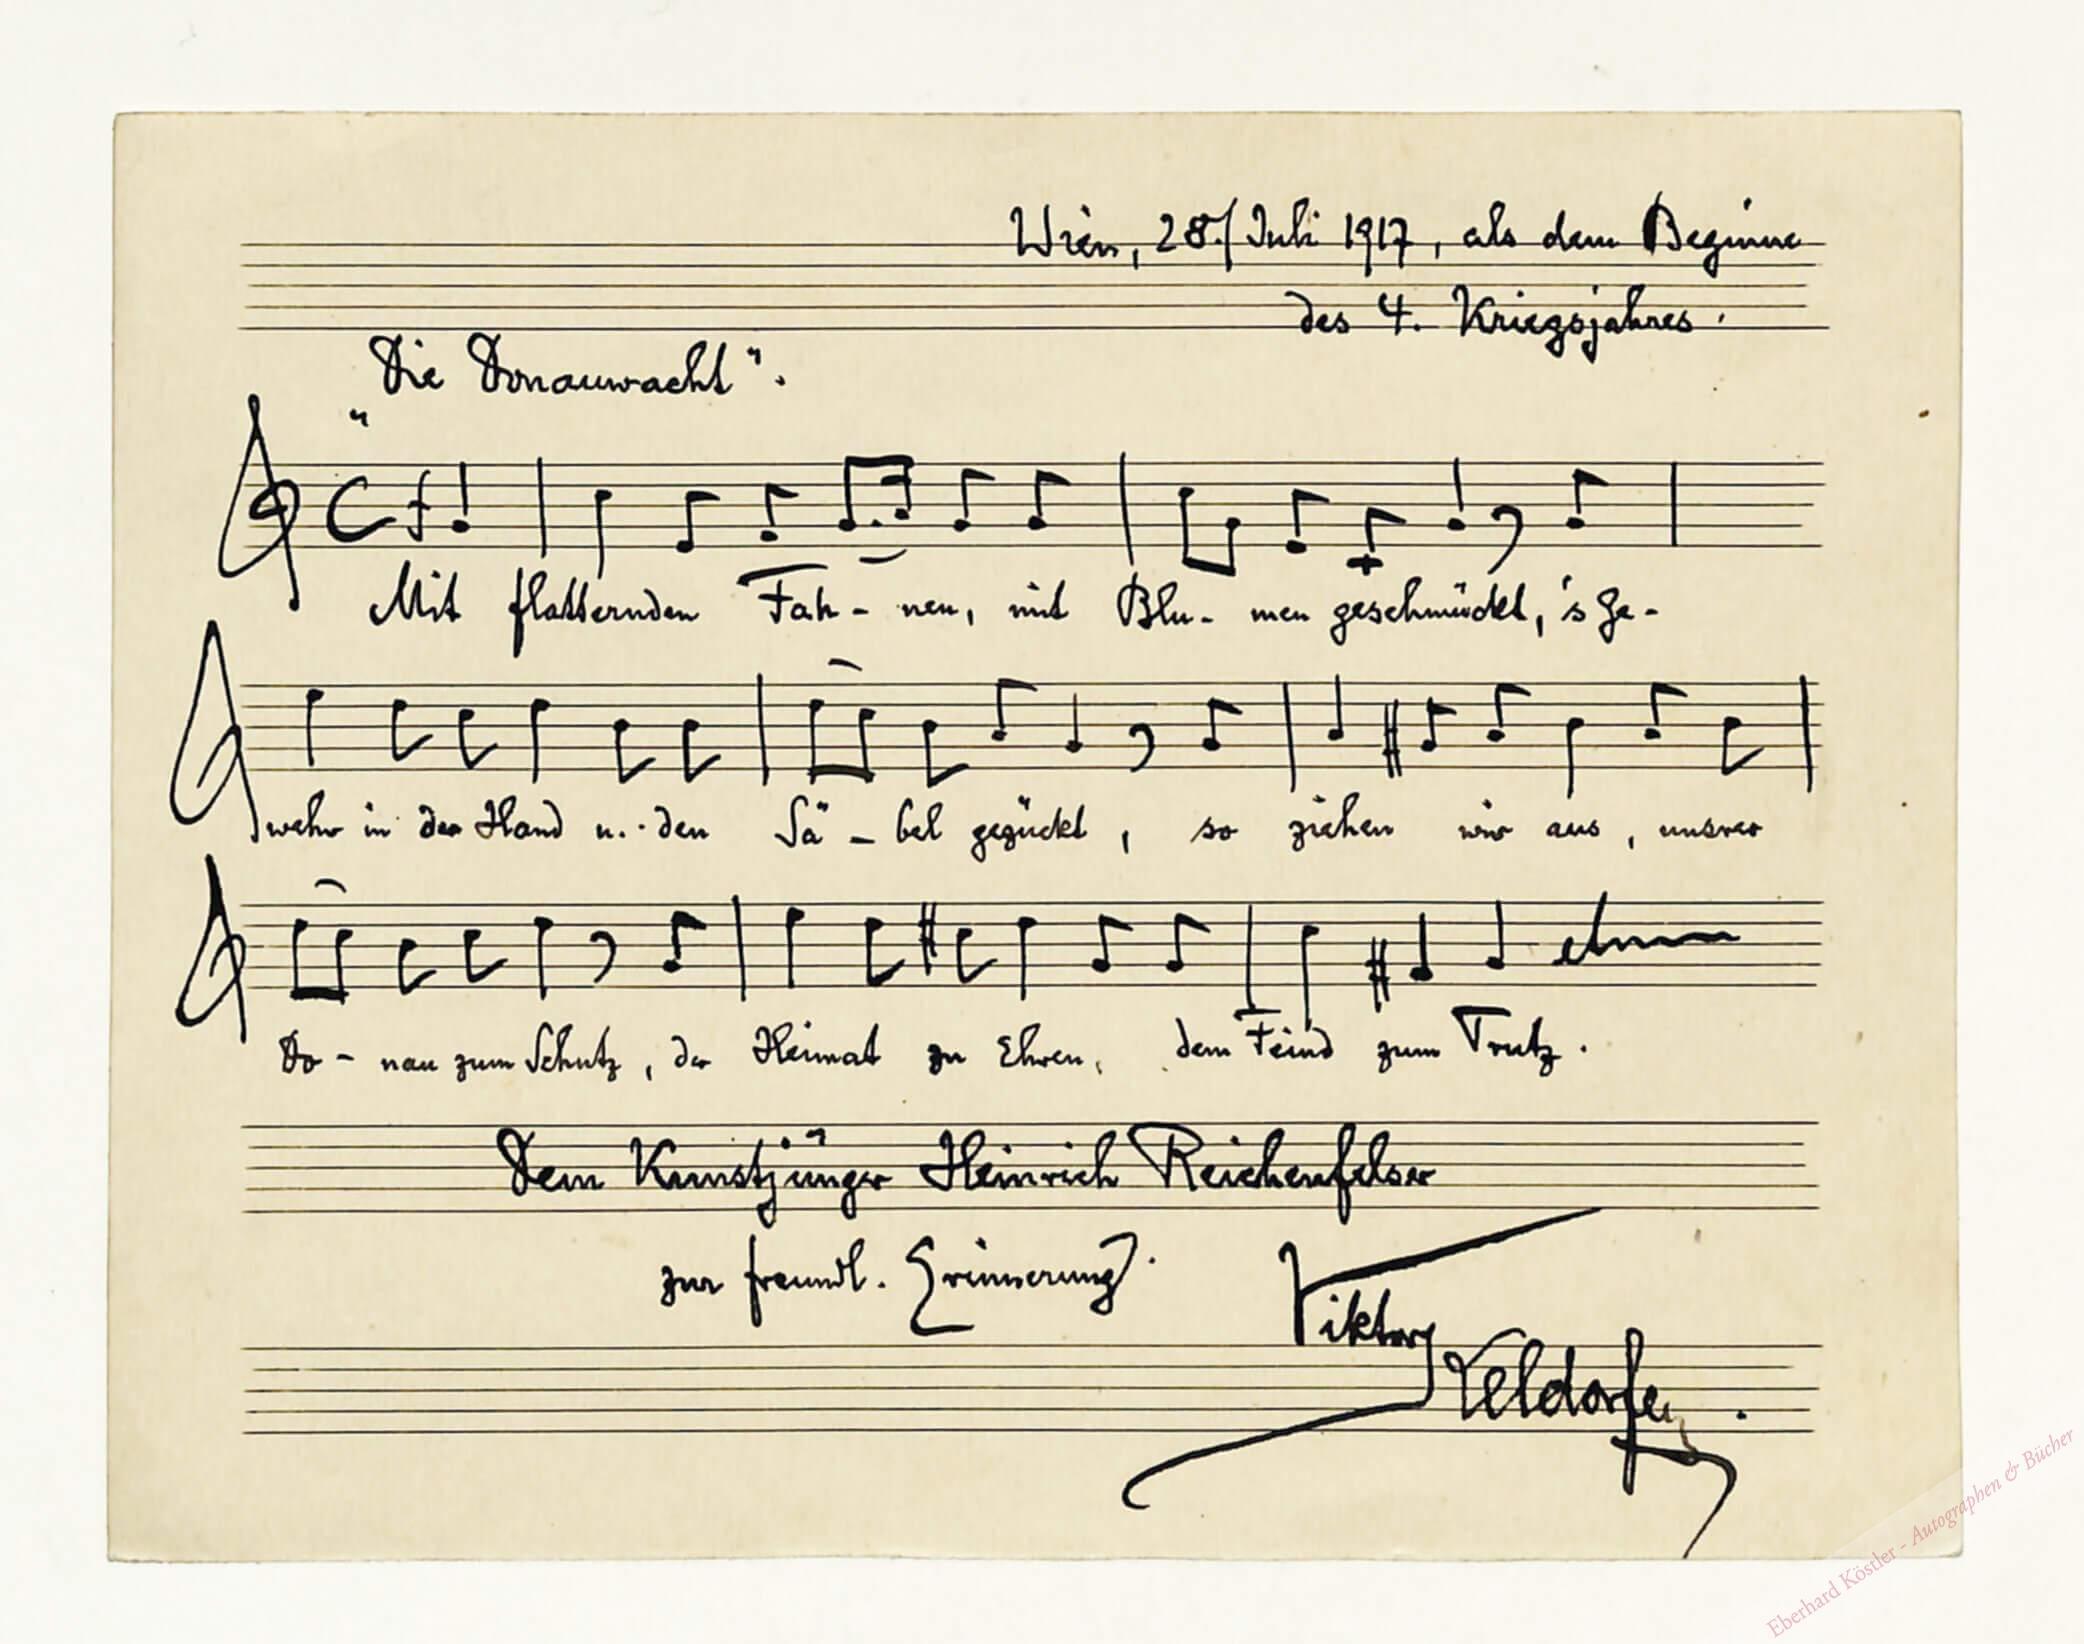 Wien, 28./Juli 1917, als dem Beginne
des 4. Kriegsjahres.
"Die Donauwacht".
Mit flatternden Fah- nen, mit Blu- men geschmückt, 's Ge-
wehr in der Hand u. den Sä- bel gezückt, so ziehen wir aus, unsrer
Do- nau zum Schutz, der Heimat zu Ehren, dem Feind zum Trutz.
Dem Kunstjünger Heinrich Reichenfelser
zur freundl. Erinnerung.
Viktor
Keldorfer.
Eberhard Köstler - Autographen & Bücher